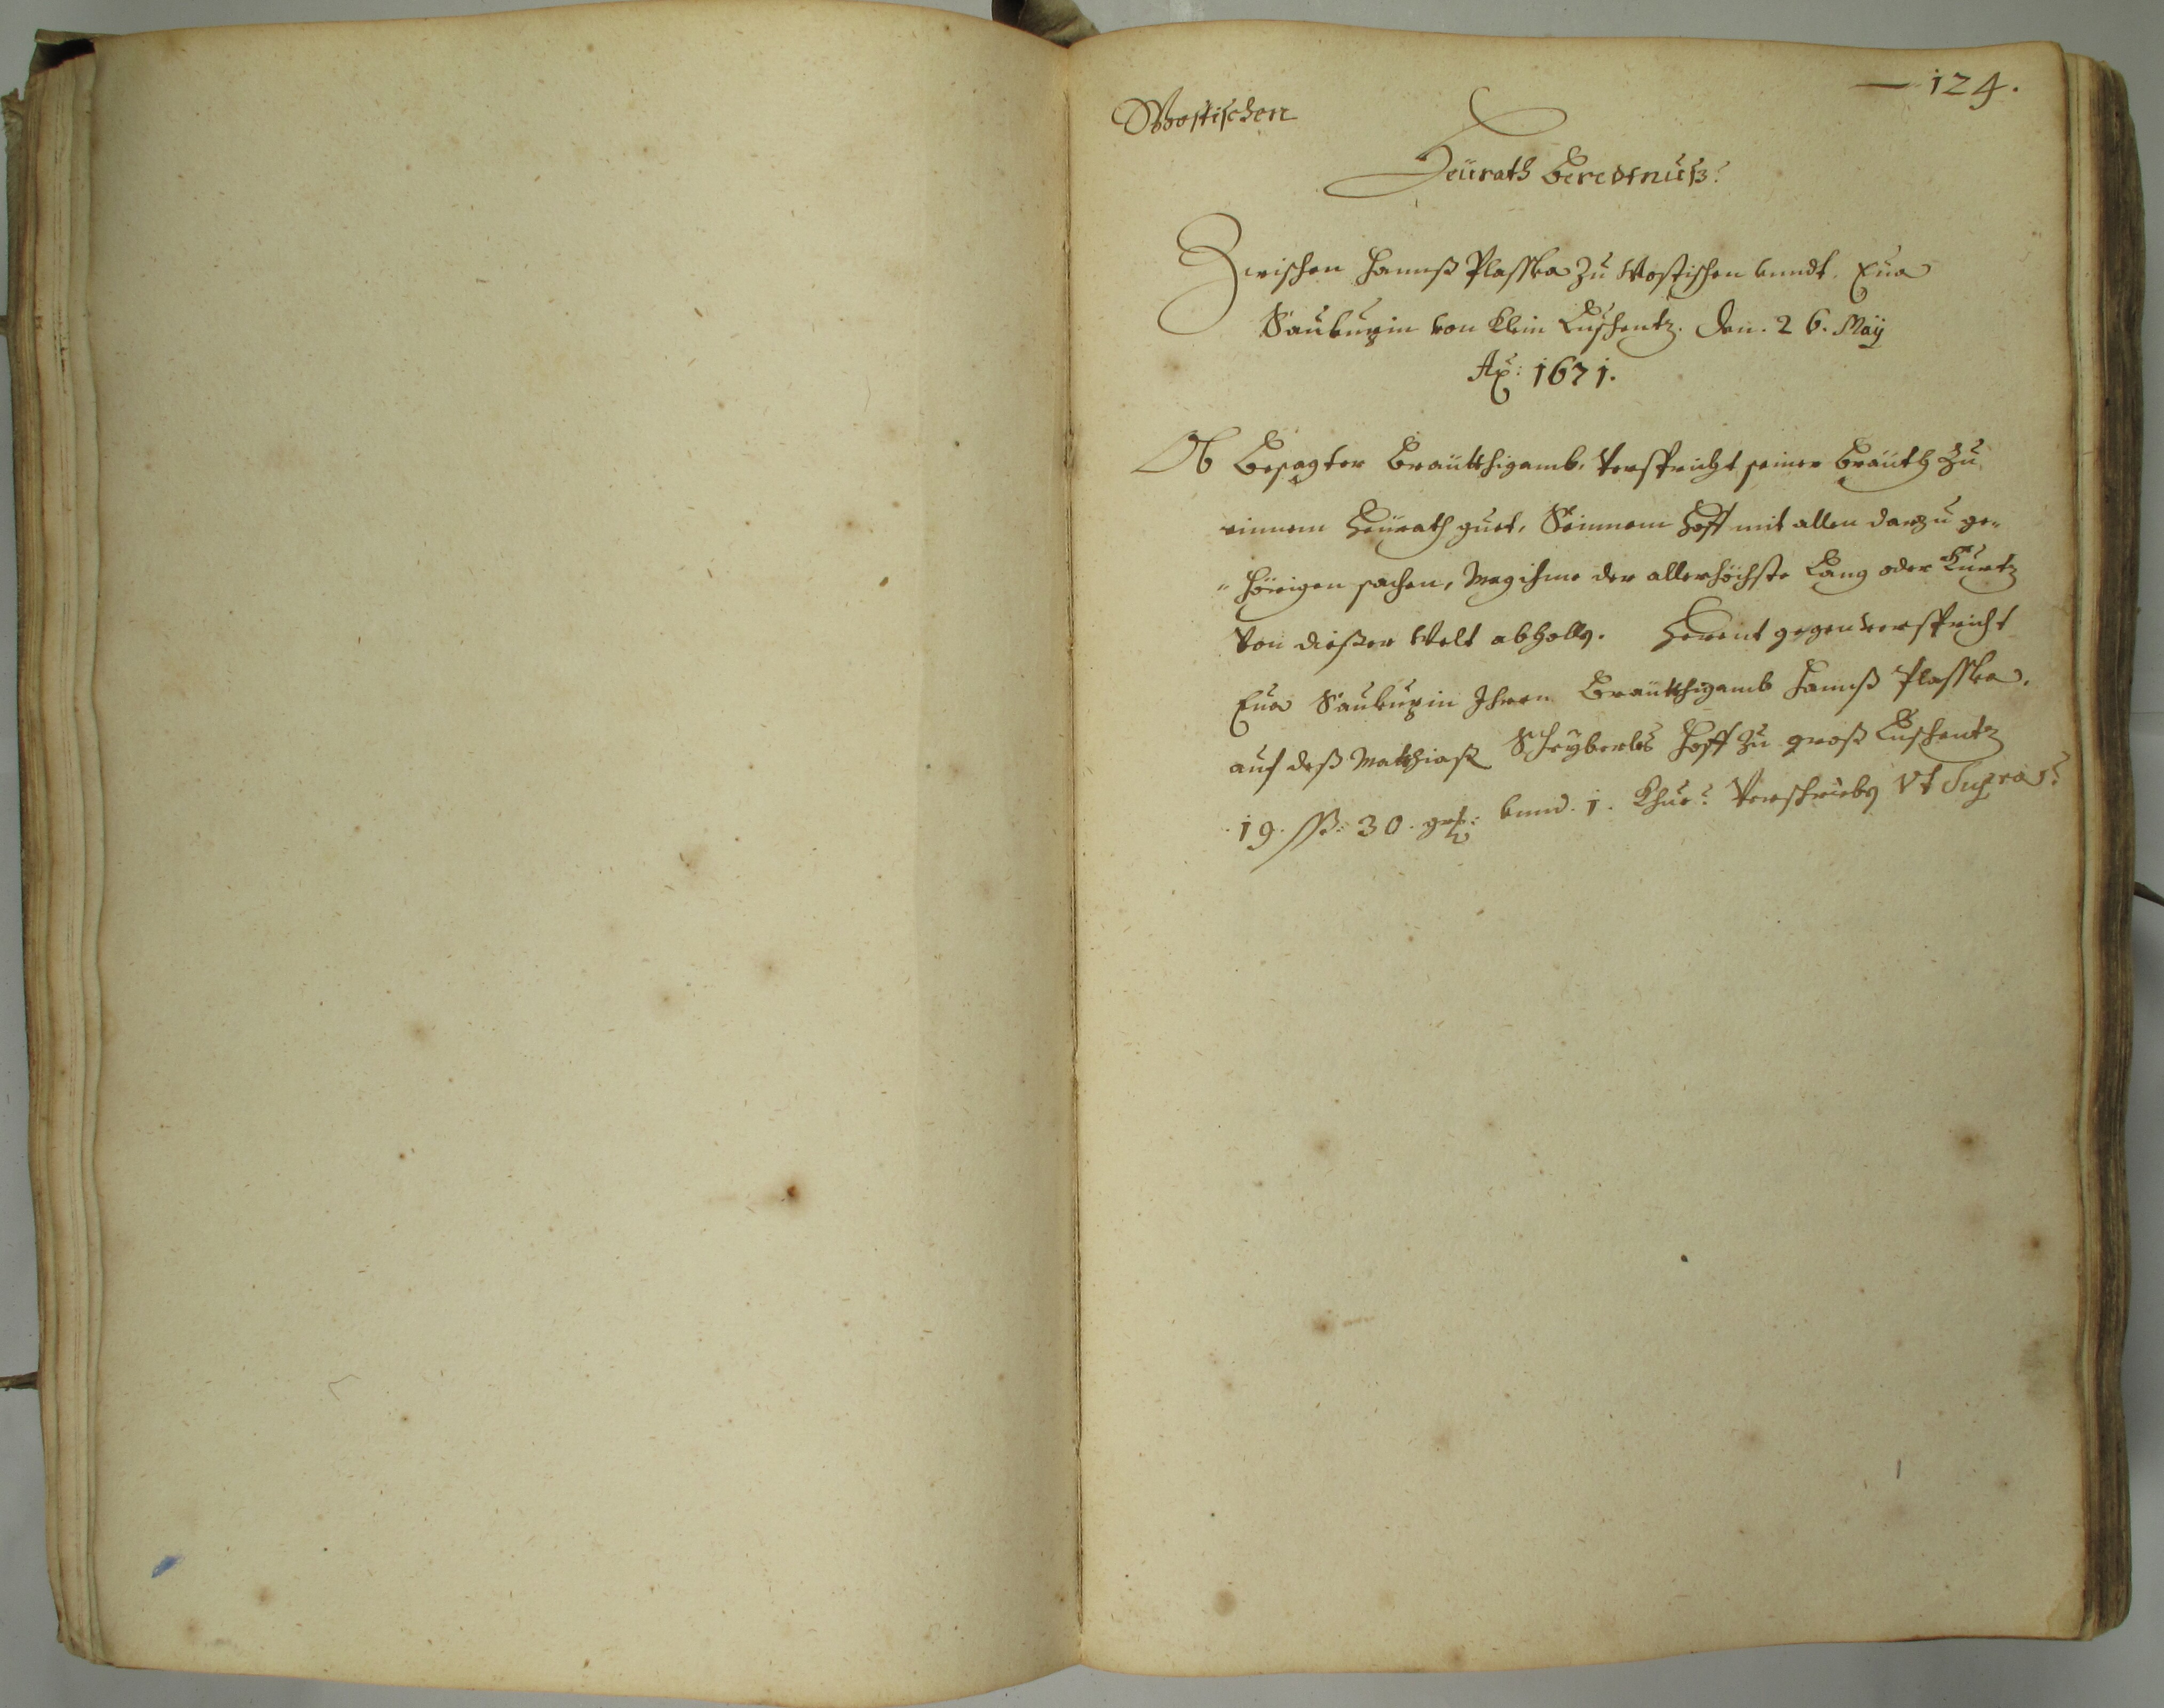 124.
Wostischen
Heürath Beredtnüß
Zwischen Hannß Plasska zu Wostischen vnndt. Eua
Saukupin von Klein Luschentz. Den. 26. Maÿ
Aõ: 1671.
Ob Besagter Breütthigamb, Verspricht seiner Breüth zu
einnem Heürath guet, Seinnem Hoff mit allen darzu ge-
hörigen sachen, Mag ihme der allerhöchste Lang oder Kurtz
Von dießer Welt abholln. Herent gegen verspricht
Eua Saukupin Ihren Breütthigamb Hannß Plasska,
auf deß Matthiaß Schÿberles Hoff zu groß Luschentz
19. ßß: 30. gr: vnnd. 1. Khue. Verschriebn Vt Supra